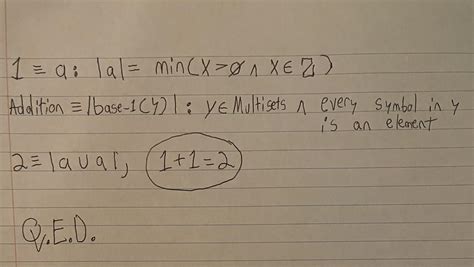 1 ≡ a: |a| = min(X>∅ ∧ X∈ℤ)
Addition ≡ |base-1(y)| : y∈Multisets ∧ every symbol in y is an element
2 ≡ |a∪a|, 1+1=2
Q.E.D.